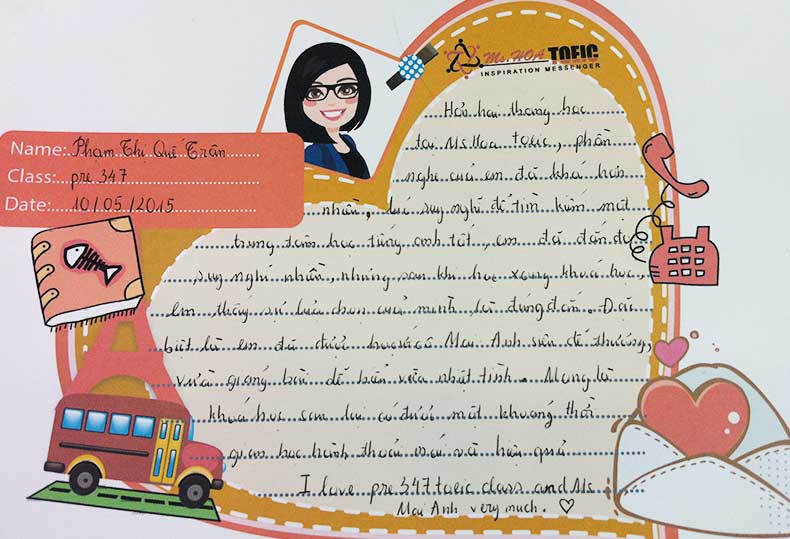 Ms. HOA TOEIC
INSPIRATION MESSENGER
Name: Phạm Thị Quế Trân
Class: pre 347
Date: 10/05/2015
Hơn hai tháng học
tại Ms Hoa toeic, phần
nghe của em đã khá hơn
nhiều, lúc suy nghĩ để tìm kiếm một
trung tâm học tiếng anh tốt, em đã đắn đo
suy nghĩ nhiều, nhưng sau khi học xong khoá học,
em thấy sự lựa chọn của mình là đúng đắn. Đặc
biệt là em đã được học cô Mai Anh siêu dễ thương,
vừa giảng bài dễ hiểu vừa nhiệt tình. Mong là
khoá học sau lại có được một khoảng thời
gian học hành thoải mái và hiệu quả
I love pre 347 toeic class and Ms
Mai Anh very much. ♡